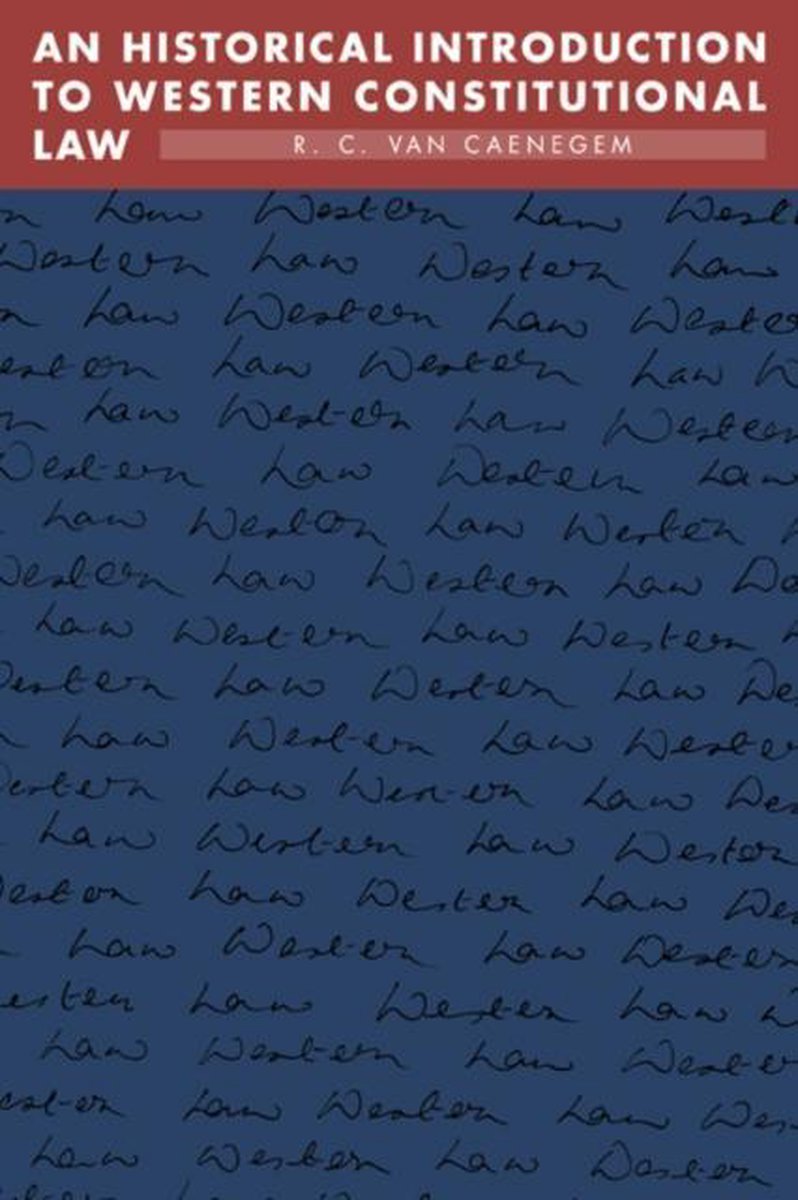 AN HISTORICAL INTRODUCTION
TO WESTERN CONSTITUTIONAL
LAW R. C. VAN CAENEGEM
n Law Western Law West
Western Law Western Law
n Law Western Law Weste
estern Law Western Law W
n Law Western Law Western
Western Law Western Law
Law Western Law Western
Western Law Western Law We
Law Western Law Western
Western Law Western Law Wes
n Law Western Law Weste
estern Law Western Law Wes
Law Western Law Western
estern Law Western Law Wes
Law Western Law Western
estern Law Western Law W
Law Western Law Weste
estern Law Western Law Wes
Law Western Law Western